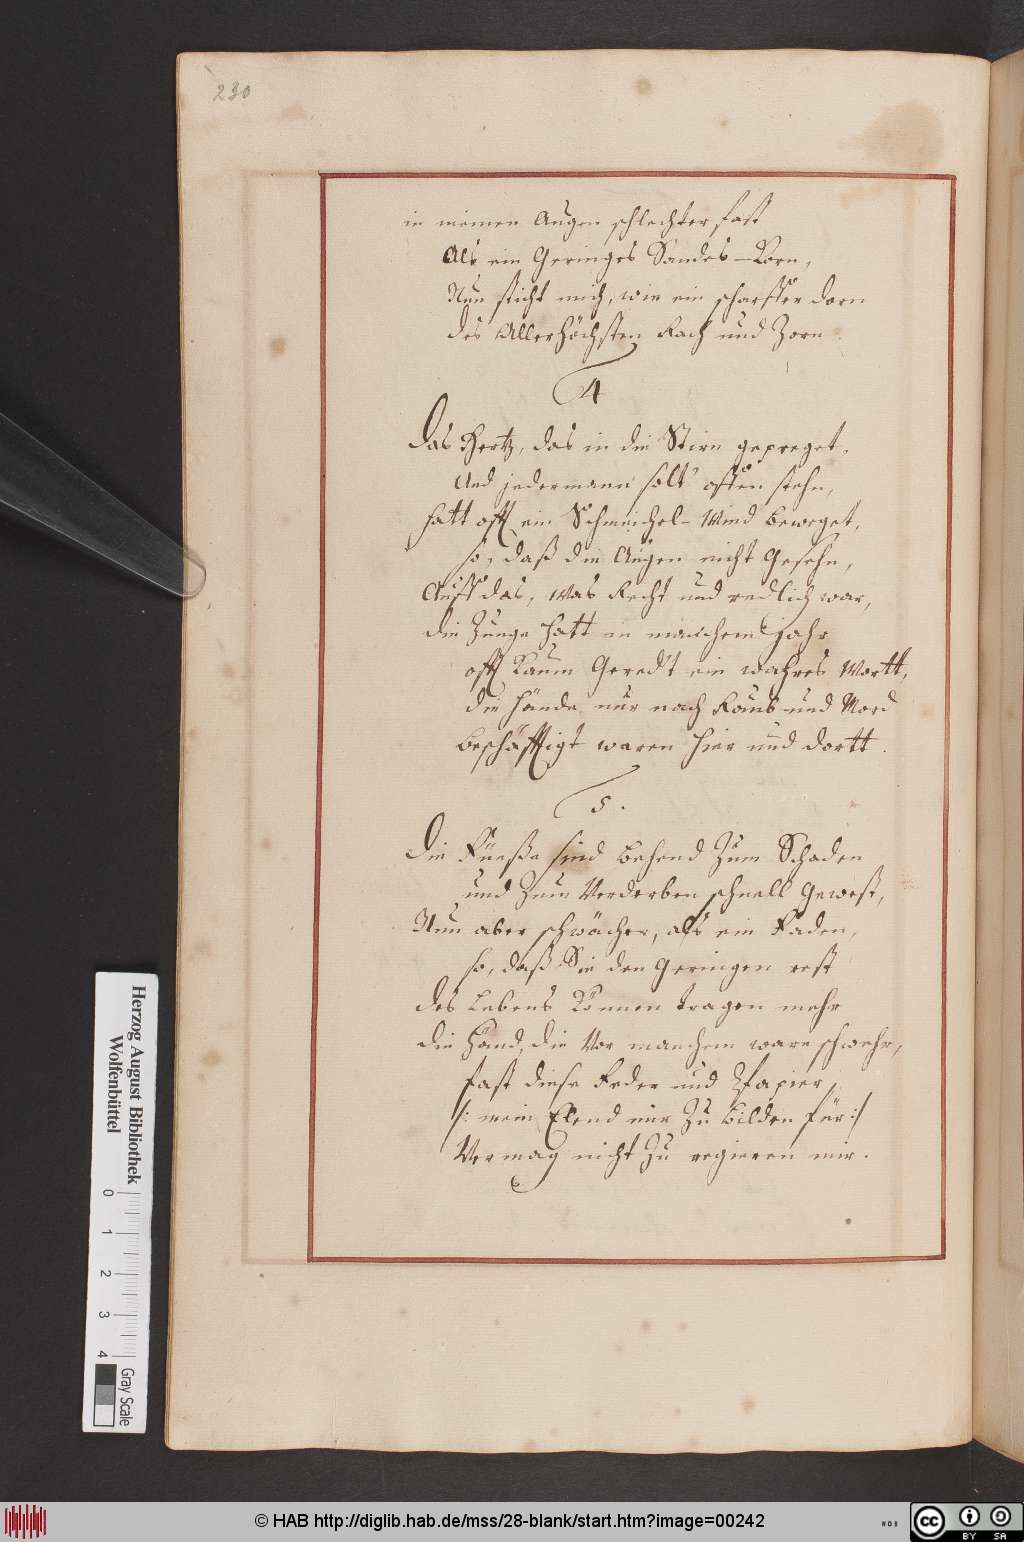 230
in meinen Augen schlechter fast
Als ein Geringes Sandes-Korn,
Nun sticht mich, wie ein scharffer dorn
des Allerhöchsten Rach und Zorn.
4
Das Hertz, das in die Stirn gepreget,
Und jedermann solt' offen stehn,
hatt offt ein Schmeichel-Wind beweget,
so, daß die Augen nicht Gesehn,
Auff das, was Recht und redlich war,
die Zunge hatt in manchem Jahr
offt Kaum Geredt ein wahres Wortt,
die Hände nur nach Raub und Mord
beschäfftigt waren hier und dortt.
5.
Die Füeße sind behend Zum Schaden
und Zum Verderben schnell Gewest,
Nun aber schwächer, als ein Faden,
so, daß Sie den Geringen rest
des Lebens Können tragen mehr
die Hand, die Vor manchem ware schwehr,
fast diese Feder und Papier,
/: mein Elend mir Zu bilden für :/
Vermag nicht Zu regieren mir.
Herzog August Bibliothek
Wolfenbüttel
0 1 2 3 4
Gray Scale
© HAB http://diglib.hab.de/mss/28-blank/start.htm?image=00242
WDB
cc BY SA